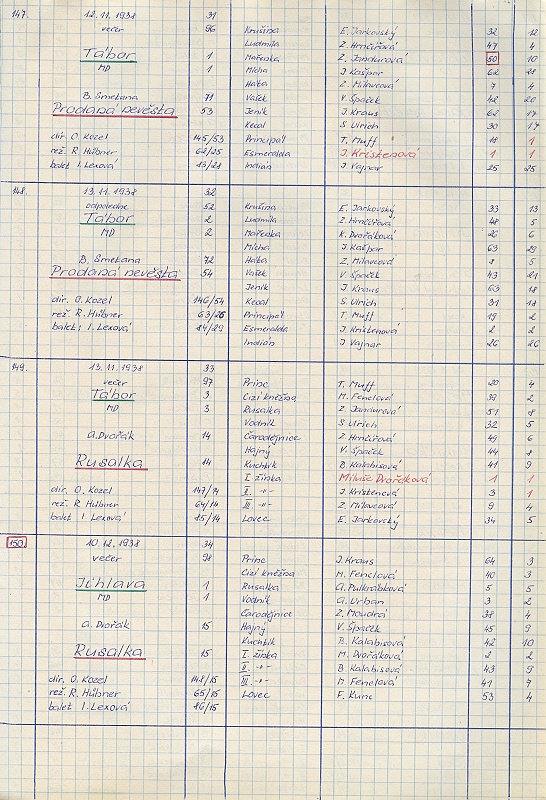 147. 12.11.1938 31 Krušina E. Jarkovský 32 12
večer 96 Ludmila Z. Hrnčířová 47 4
Tábor 1 Mařenka Z. Jandurová 50 10
MD 1 Mícha J. Kašpar 62 28
Háta Z. Milavcová 7 4
B. Smetana 71 Vašek V. Špaček 42 20
Prodaná nevěsta 53 Jeník J. Kraus 62 17
Kecal S. Ulrich 30 17
dir. O. Kozel 145/53 Principál T. Muff 18 1
rež. R. Hübner 62/25 Esmeralda J. Kristenová 1 1
balet I. Lexová 13/28 Indián J. Vajnar 25 25
148. 13.11.1938 32
odpoledne 52 Krušina E. Jarkovský 33 13
Tábor 2 Ludmila Z. Hrnčířová 48 5
MD 2 Mařenka K. Dvořáková 26 6
Mícha J. Kašpar 63 29
B. Smetana 72 Háta Z. Milavcová 8 5
Prodaná nevěsta 54 Vašek V. Špaček 43 21
Jeník J. Kraus 63 18
dir. O. Kozel 146/54 Kecal S. Ulrich 31 18
rež. R. Hübner 63/26 Principál T. Muff 19 2
balet: I. Lexová 14/29 Esmeralda J. Kristenová 2 2
Indián J. Vajnar 26 26
149. 13.11.1938 33
večer 97 Princ T. Muff 20 4
Tábor 3 Cizí kněžna M. Fenclová 39 2
MD 3 Rusalka Z. Jandurová 51 8
Vodník S. Ulrich 32 5
A. Dvořák 14 Čarodějnice Z. Hrnčířová 49 6
Hajný V. Špaček 44 8
Rusalka 14 Kuchtík B. Kalabisová 41 9
I. žínka Miluše Dvořáková 1 1
dir. O. Kozel 147/14 II. -"- J. Kristenová 3 1
rež. R. Hübner 64/14 III. -"- Z. Milavcová 9 4
balet I. Lexová 15/14 Lovec E. Jarkovský 34 5
150. 10.12.1938 34
večer 98 Princ J. Kraus 64 3
Cizí kněžna M. Fenclová 40 3
Jihlava 1 Rusalka A. Pulkrábková 5 5
MD 1 Vodník A. Urban 3 2
Čarodějnice Z. Moudrá 38 4
A. Dvořák 15 Hajný V. Špaček 45 9
Kuchtík B. Kalabisová 42 10
Rusalka 15 I. žínka M. Dvořáková 2 2
II. -"- B. Kalabisová 43 5
dir. O. Kozel 148/15 III. -"- M. Fenclová 41 7
rež. R. Hübner 65/15 Lovec F. Kunc 53 4
balet I. Lexová 16/15